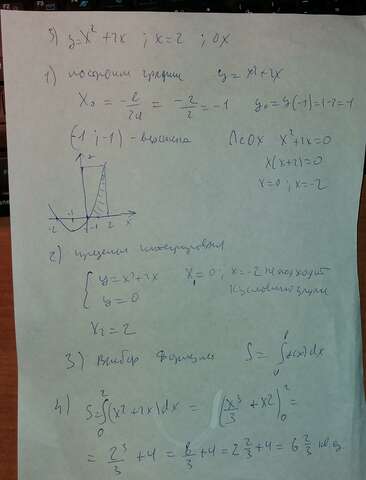 5) y=x² +2x ; x=2 ; ox
1) построим график y = x²+2x
x₀ = -b/2a = -2/2 = -1 y₀ = y(-1)=1-2=-1
(-1 ; -1) - вершина ПсOX x²+2x=0
x(x+2)=0
x=0 ; x=-2
-2 -1 1 2 x
2) пределы интегрирования
{ y=x²+2x x₁=0 ; x=-2 не подходит
y=0 к условию
x₂=2
3) Выбор формулы S= ∫f(x)dx
4) S=∫₀²(x²+2x)dx = (x³/3 +x²)|₀² =
= 2³/3 +4 = 8/3 +4 = 2 2/3 +4 = 6 2/3 кв.ед